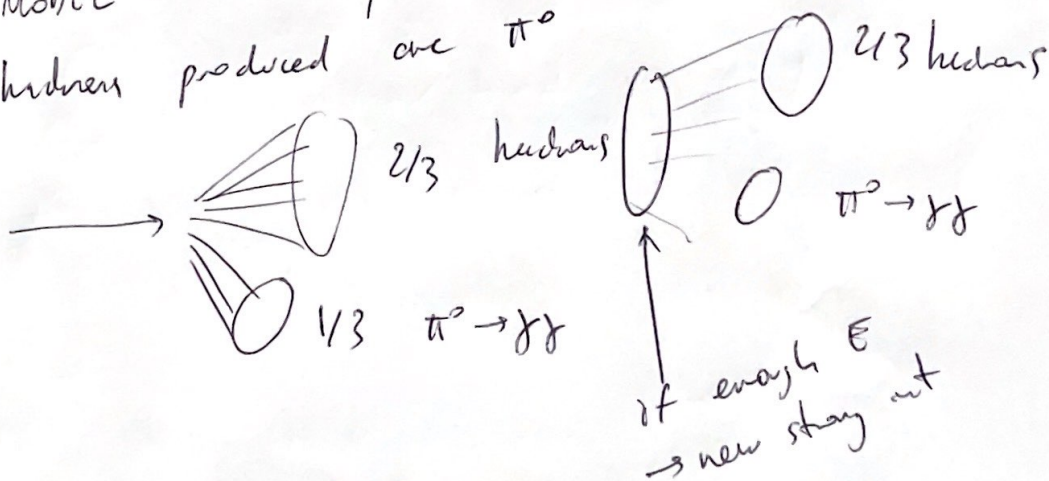 hadrons produced are π⁰
2/3
1/3 π⁰ → γγ
hadrons
2/3 hadrons
π⁰ → γγ
if enough E
→ new strong int